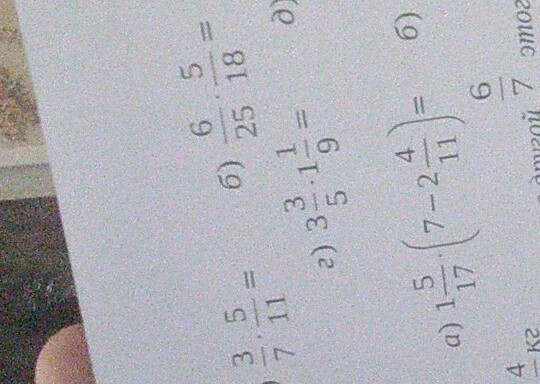 3/7 · 5/11 = б) 6/25 · 5/18 =
г) 3 3/5 · 1 1/9 = д)
а) 1 5/17 · (7 − 2 4/11) = б)
4/ кг другой 6/7 этог